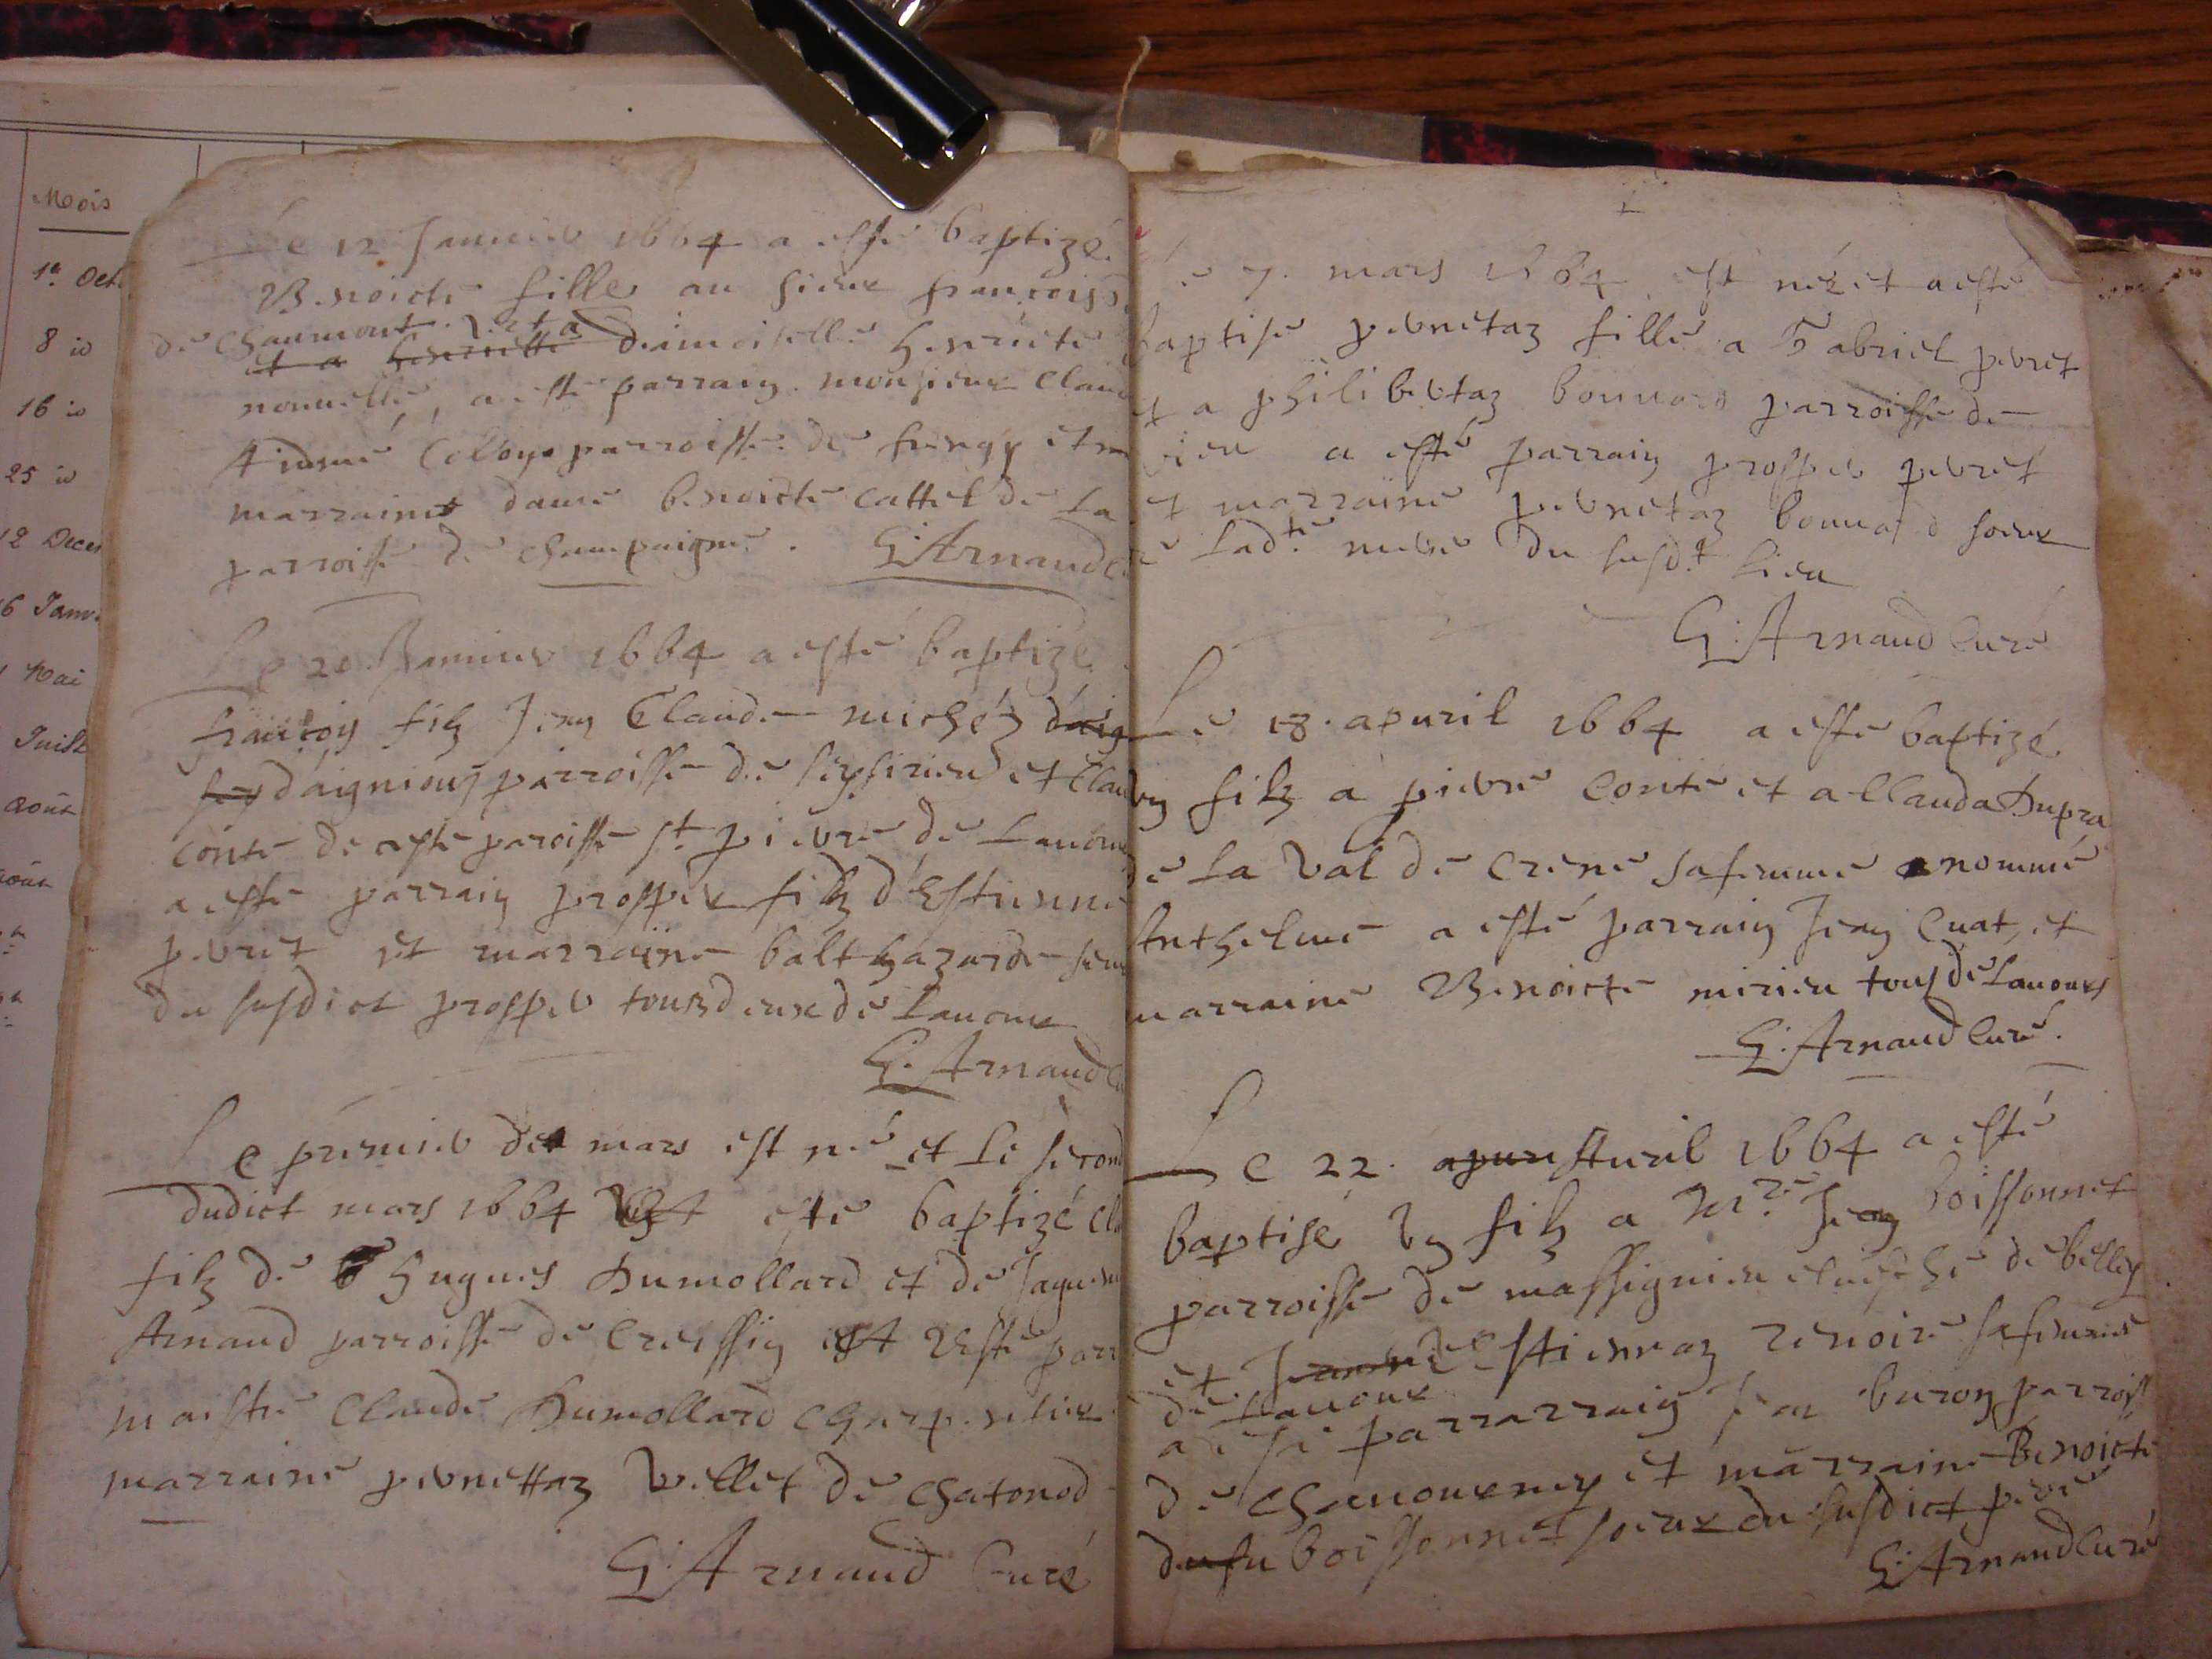 Mois
1er Oct
8 io
16 io
25 io
12 Decem
6 Janv.
Mai
Juill
aout
aout
Le 12 Januier 1664 a esté baptizé
Benoicte fille au sieur francois
de Chaumont et a
et a henriette damoiselle henriete
nouuelle, a esté parrain monsieur Claud
parroisse de et
marraine dame benoicte cattel de La
parroisse de champaigne. G: Arnaud C
Le 20 Januier 1664 a esté baptizé
francoys filz Jean Claude michéz daig
sey daignious parroisse de seyssirieu et Clau
conte de ceste paroisse st pierre de Lauour
a esté parrain prosper filz d'Estienne
peuret et marraine balthazarde seur
du susdict prosper tousdeux de Lauour
G: Arnaud Cu
Le premier de mars est né et le second
dudict mars 1664 esté baptizé Cla
filz de Hugues Dumollard et de Jaquem
Arnaud parroisse de Cressiy esté parr
maistre Claude Dumollard charpentier
marraine pernettaz Vellet de chatonod
G: Arnaud Curé
Le 7. mars 1664 est néé et a esté
baptisé pernetaz fille a Gabriel peuret
et a philibertaz bonnard parroisse de
a esté parrain prosper peuret
et marraine pernetaz bonnard soeur
de Ladte mere du susdt Lieu
G: Arnaud Curé
Le 18. apuril 1664 a esté baptizé
vn filz a pierre Conte et a Clauda Dupra
de La Val de Crene sa femme nommé
Anthelme a esté parrain Jean Cuat, et
marraine Benoicte mirieu tous de Lauours
G: Arnaud Curé.
Le 22. apuri Auril 1664 a esté
baptisé vn filz a Mre Jean boissonnet
parroisse de massignieu euesché de belley
et Jeanne Estiennaz Renoire sa femme
de Lauour
a esté parrarrain Jean buron parroisse
de Chauournay et marraine Benoicte
dusu boissonnet soeur du susdict pere
G: Arnaud Curé